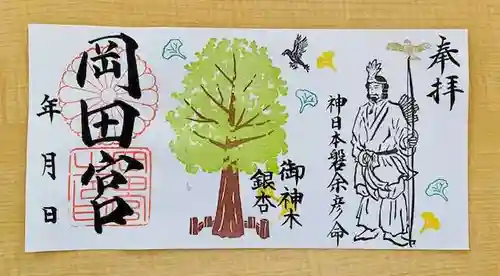 奉拝
神日本磐余彦命
御神木
銀杏
岡田宮
年月日